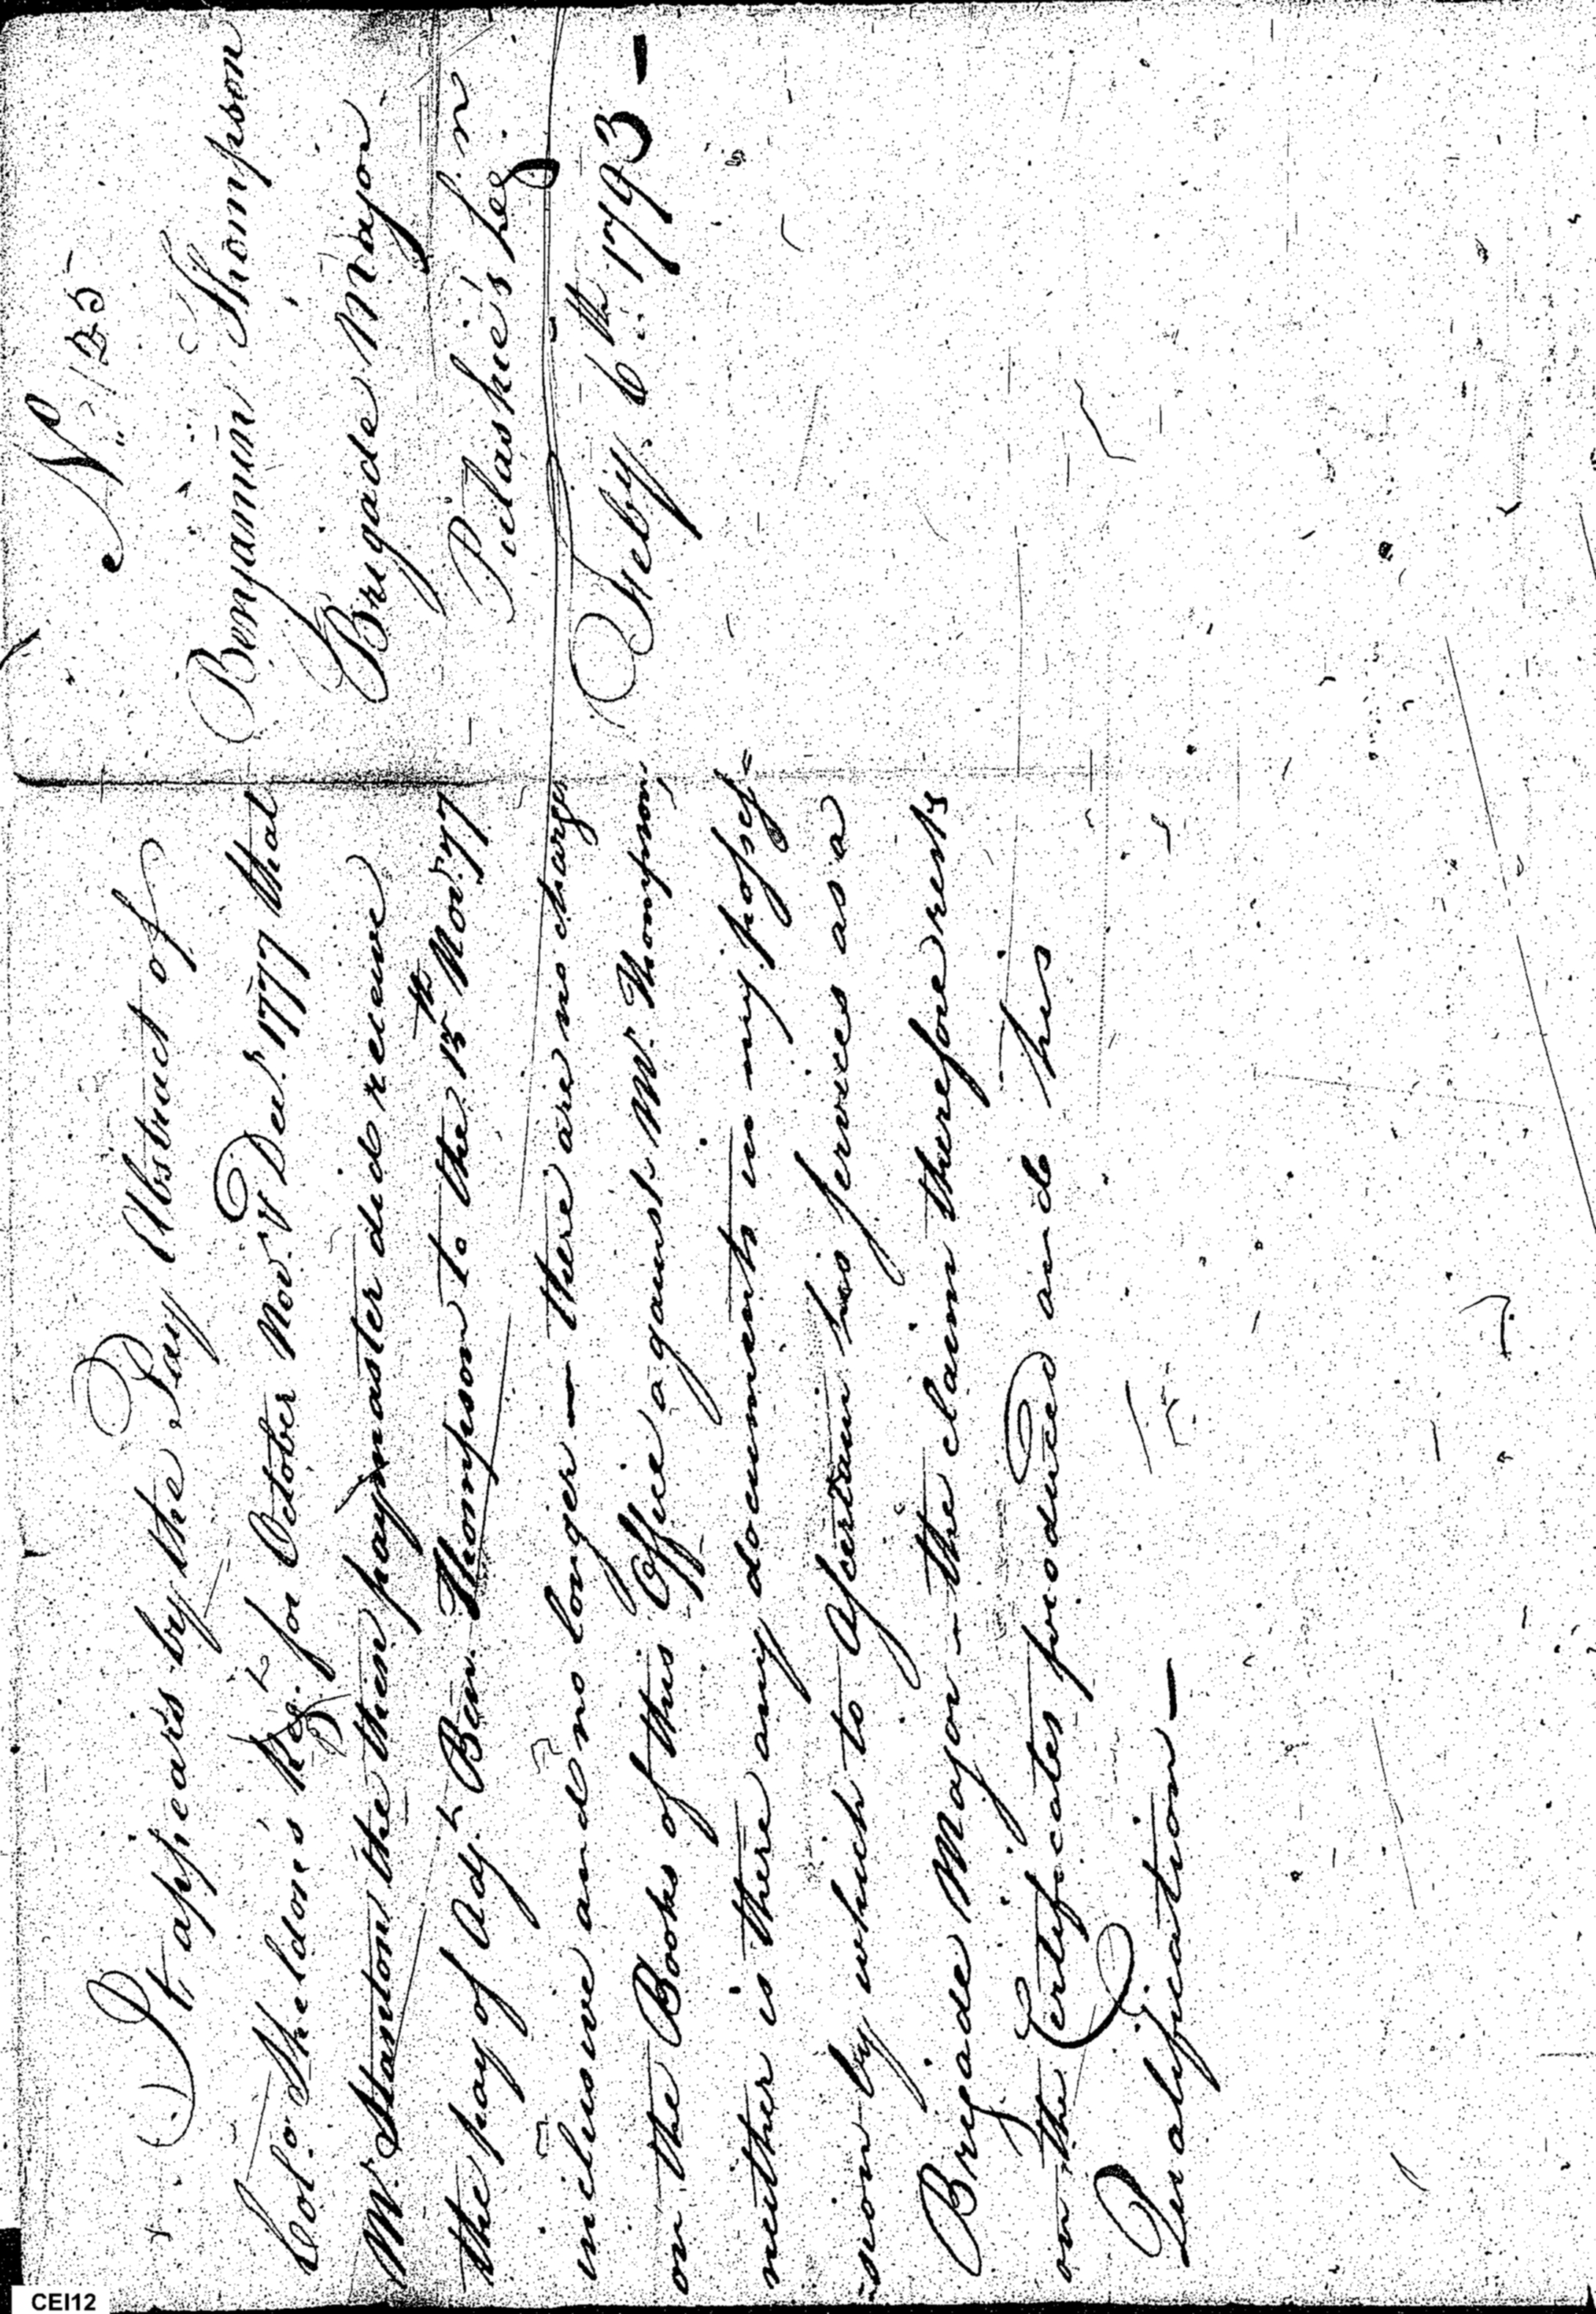 It appears by the Pay Abstract of
Col.º Sheldon's Reg.t for October Nov.r & Dec.r 1777 that
M.r Stanton the then paymaster did receive
the pay of Adj.t Ben Thompson to the 15th Nov.r 77
inclusive and no longer — there are no charges
on the Books of this Office against M.r Thompson,
neither is there any documents in my posses=
-sion by which to Ascertain his services as a
Brigade Major — the claim therefore rests
on the Certificates produced and his
Qualification —
N.º 125
Benjamin Thompson
Brigade Major
Pulaskie's
Feby. 6.th 1793 —
CEI12